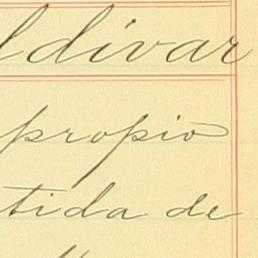 ldivar
propio
tida de